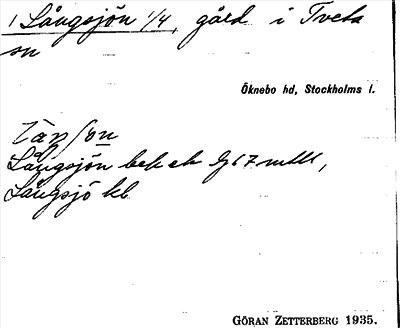 1 Långsjön 1/4, gård i Tveta
sn
Öknebo hd, Stockholms l.
Långsjön bek ek
Långsjö kb
GÖRAN ZETTERBERG 1935.